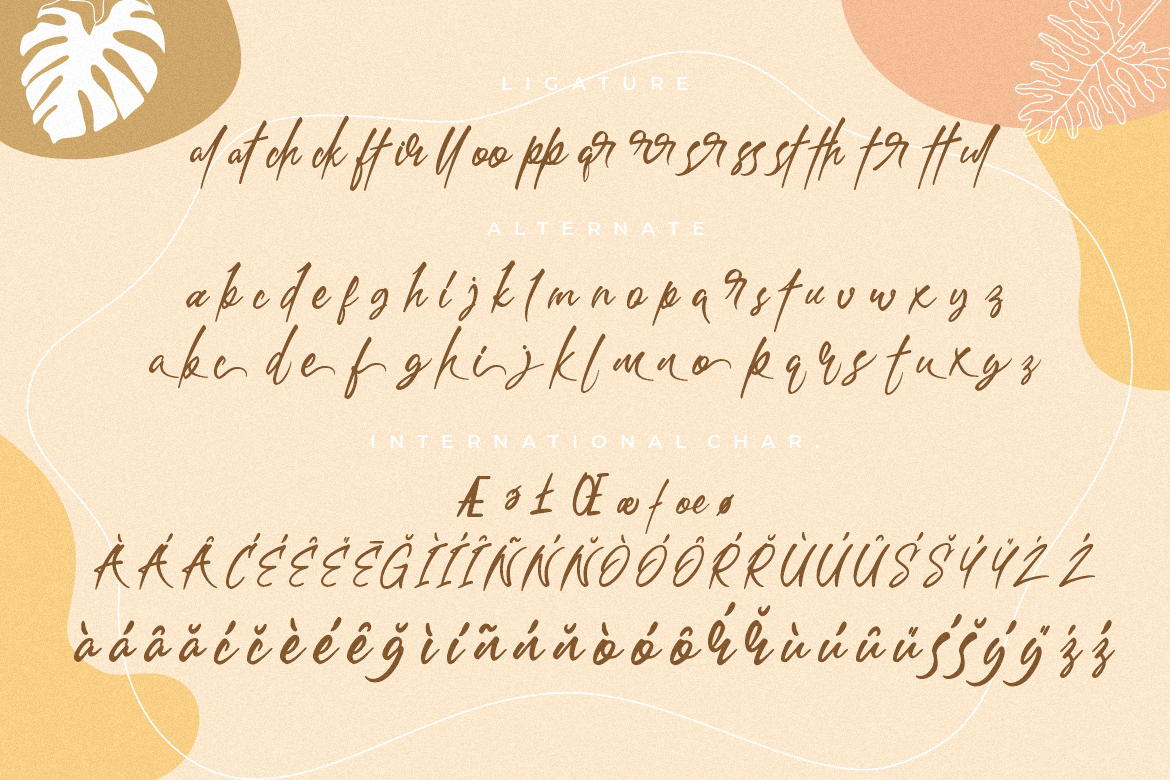 LIGATURE
al at ch ck ft ir ll oo pp qr rr sr ss st th tr tt ul
ALTERNATE
a b c d e f g h i j k l m n o p q r s t u v w x y z
a b c d e f g h i j k l m n o p q r s t u x y z
INTERNATIONAL CHAR.
Æ Ł Œ æ ƒ œ ø
À Á Â Ć É Ê Ë Ē Ğ Ì Í Î Ñ Ń Ň Ò Ó Ô Ŕ Ř Ù Ú Û Ś Š Ý Ÿ Ż Ź
à á â ă ć č è é ê ğ ì í ñ ń ň ò ó ô ŕ ř ù ú û ü ś š ý ÿ ż ź